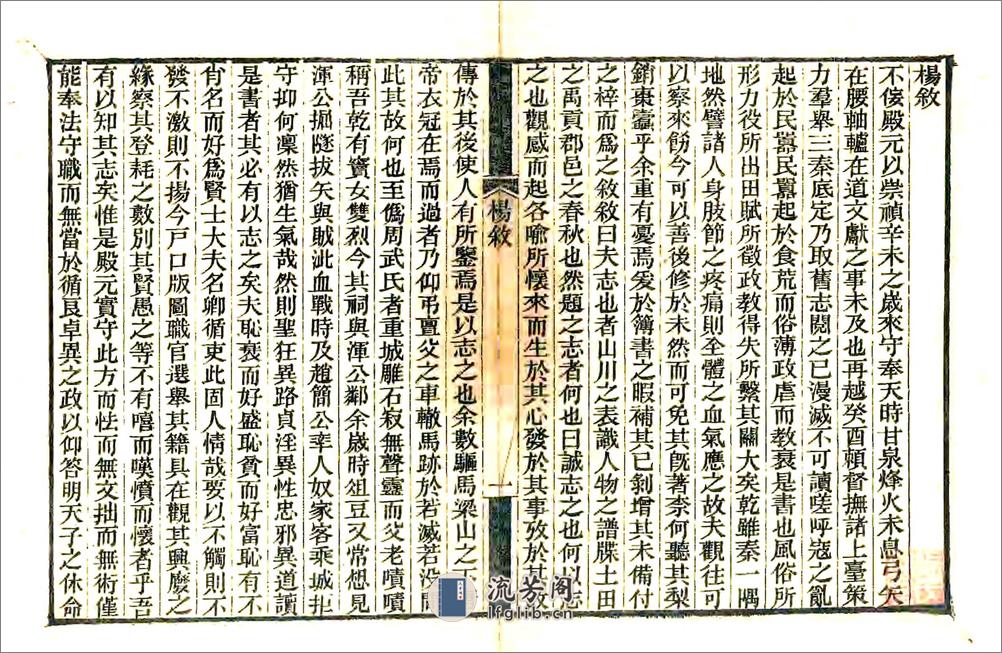 楊敘
不佞殿元以崇禎辛未之歲來守奉天時甘泉烽火未息弓矢
在腰軸轤在道文獻之事未及也再越癸酉賴督撫諸上臺策
力羣舉三秦底定乃取舊志閱之已漫滅不可讀嗟呼寇之亂
起於民嚚民嚚起於食荒而俗薄政虐而教衰是書也風俗所
形力役所出田賦所徵政教得失所繫其關大矣乾雖秦一隅
地然譬諸人身肢節之疼痛則全體之血氣應之故夫觀往可
以察來飭今可以善後修於未然而可免其旣著柰何聽其梨
銷棗蠹乎余重有憂焉爰於簿書之暇補其已剝增其未備付
之梓而爲之敘敘曰夫志也者山川之表識人物之譜牒土田
之禹貢郡邑之春秋也然題之志者何也曰誠志之也何以志
之也觀感而起各喻所懷來而生於其心發於其事攷於其政
楊敘
一
傳於其後使人有所鑒焉是以志之也余數驅馬梁山之下
帝衣冠在焉而過者乃仰弔亶父之車轍馬跡於若滅若没間
此其故何也至僞周武氏者重城雕石寂無聲靈而父老嘖嘖
稱吾乾有竇女雙烈今其祠與渾公鄰余歲時俎豆又常想見
渾公掘隧拔矢與賊泚血戰時及趙簡公率人奴家客乘城拒
守抑何凜然猶生氣哉然則聖狂異路貞淫異性忠邪異道讀
是書者其必有以志之矣夫恥衰而好盛恥貧而好富恥有不
肖名而好爲賢士大夫名卿循吏此固人情哉要以不觸則不
發不激則不揚今戸口版圖職官選舉其籍具在觀其興廢之
緣察其登耗之數別其賢愚之等不有嘻而嘆憤而懷者乎吾
有以知其志矣惟是殿元實守此方而怯而無文拙而無術僅
能奉法守職而無當於循良卓異之政以仰答明天子之休命
流芳阁
lfglib.cn